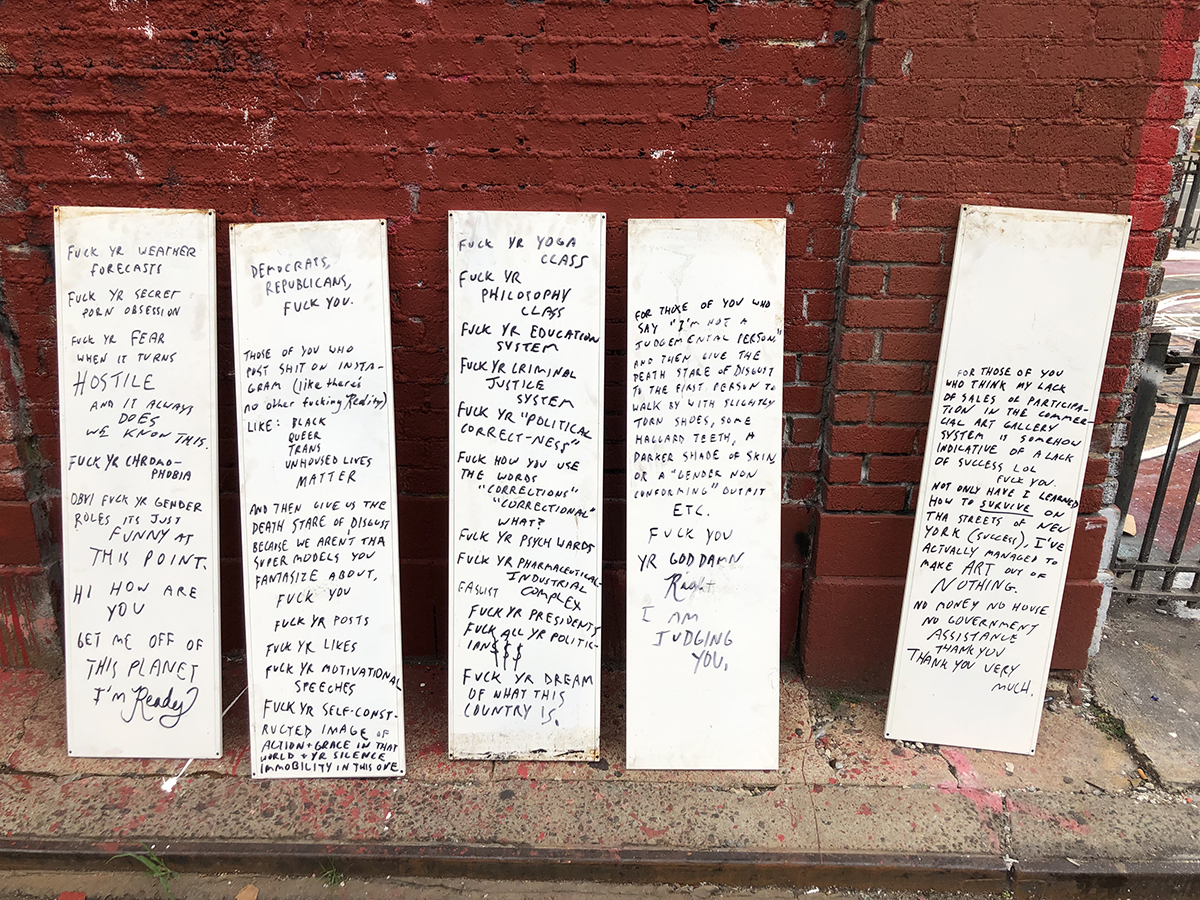 FUCK YR WEATHER
FORECASTS
FUCK YR SECRET
PORN OBSESSION
FUCK YR FEAR
WHEN IT TURNS
HOSTILE
AND IT ALWAYS
DOES
WE KNOW THIS.
FUCK YR CHROMO-
PHOBIA
OBVI FUCK YR GENDER
ROLES ITS JUST
FUNNY AT
THIS POINT.
HI HOW ARE
YOU
GET ME OFF OF
THIS PLANET
I'm Ready
DEMOCRATS,
REPUBLICANS,
FUCK YOU.
THOSE OF YOU WHO
POST SHIT ON INSTA-
GRAM (like there's
no other fucking Reality)
LIKE: BLACK
QUEER
TRANS
UNHOUSED LIVES
MATTER
AND THEN GIVE US THE
DEATH STARE OF DISGUST
BECAUSE WE AREN'T THA
SUPER MODELS YOU
FANTASIZE ABOUT,
FUCK YOU
FUCK YR POSTS
FUCK YR LIKES
FUCK YR MOTIVATIONAL
SPEECHES
FUCK YR SELF-CONST-
RUCTED IMAGE OF
ACTION + GRACE IN THAT
WORLD + YR SILENCE
IMMOBILITY IN THIS ONE
FUCK YR YOGA
CLASS
FUCK YR
PHILOSOPHY
CLASS
FUCK YR EDUCATION
SYSTEM
FUCK YR CRIMINAL
JUSTICE
SYSTEM
FUCK YR "POLITICAL
CORRECT-NESS"
FUCK HOW YOU USE
THE WORDS
"CORRECTIONS"
"CORRECTIONAL"
WHAT?
FUCK YR PSYCH WARDS
FUCK YR PHARMACEUTICAL
INDUSTRIAL
COMPLEX
FUCK YR PRESIDENTS
FUCK ALL YR POLITIC-
IAN$$$
FUCK YR DREAM
OF WHAT THIS
COUNTRY IS.
FOR THOSE OF YOU WHO
SAY "I'M NOT A
JUDGEMENTAL PERSON,"
AND THEN GIVE THE
DEATH STARE OF DISGUST
TO THE FIRST PERSON TO
WALK BY WITH SLIGHTLY
TORN SHOES, SOME
HAGGARD TEETH, A
DARKER SHADE OF SKIN
OR A "GENDER NON
CONFORMING" OUTFIT
ETC.
FUCK YOU
YR GODDAMN
Right
I AM
JUDGING
YOU.
FOR THOSE OF YOU
WHO THINK MY LACK
OF SALES OR PARTICIPA-
TION IN THE COMMER-
CIAL ART GALLERY
SYSTEM IS SOMEHOW
INDICATIVE OF A LACK
OF SUCCESS LOL
FUCK YOU.
NOT ONLY HAVE I LEARNED
HOW TO SURVIVE ON
THA STREETS OF NEW
YORK (SUCCESS), I'VE
ACTUALLY MANAGED TO
MAKE ART OUT OF
NOTHING.
NO MONEY NO HOUSE
NO GOVERNMENT
ASSISTANCE
THANK YOU
THANK YOU VERY
MUCH.